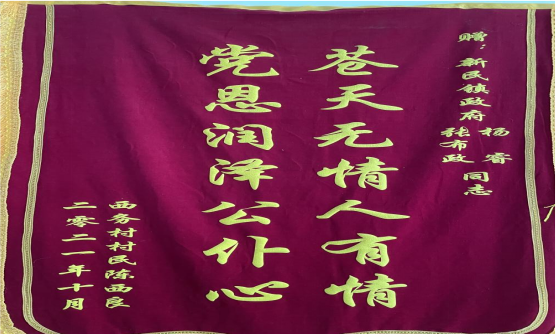 赠：新民镇政府杨睿
张布政同志
苍天无情人有情
党恩润泽公仆心
西务村村民陈西良
二零二一年十月